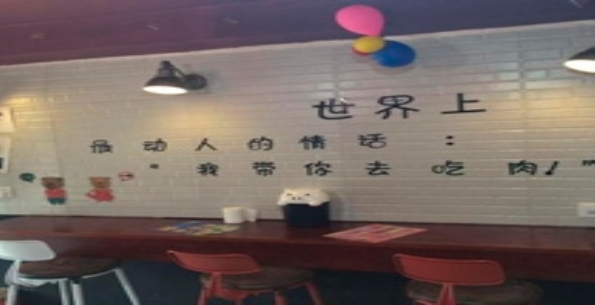 世界上
最动人的情话：
"我带你去吃肉！"